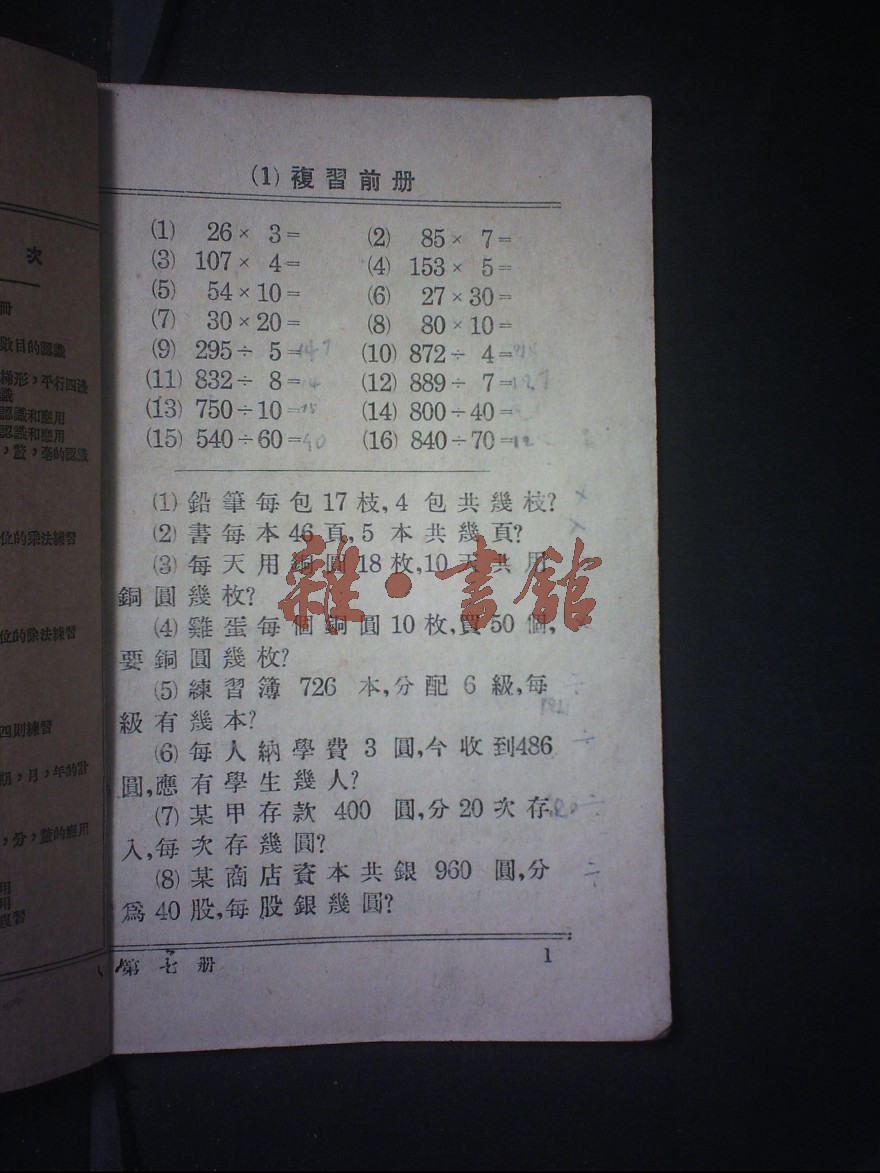 次
冊
數目的認識
梯形，平行四邊
識
認識和應用
認識和應用
，釐，毫的認識
位的乘法練習
位的除法練習
四則練習
期，月，年的計
，分，釐的應用
用
用
復習
(1) 複習前册
(1) 26 × 3 = (2) 85 × 7 =
(3) 107 × 4 = (4) 153 × 5 =
(5) 54 × 10 = (6) 27 × 30 =
(7) 30 × 20 = (8) 80 × 10 =
(9) 295 ÷ 5 = (10) 872 ÷ 4 =
(11) 832 ÷ 8 = (12) 889 ÷ 7 = 127
(13) 750 ÷ 10 = (14) 800 ÷ 40 =
(15) 540 ÷ 60 = (16) 840 ÷ 70 = 12
(1) 鉛筆每包17枝,4包共幾枝? ×
(2) 書每本46頁,5本共幾頁? ×
(3) 每天用銅圓18枚,10天共用
銅圓幾枚?
(4) 雞蛋每個銅圓10枚,買50個,
要銅圓幾枚?
(5) 練習簿 726 本,分配 6 級,每 ÷
級有幾本?
(6) 每人納學費 3 圓,今收到486 ÷
圓,應有學生幾人?
(7) 某甲存款 400 圓,分20次存 ÷
入,每次存幾圓?
(8) 某商店資本共銀 960 圓,分 ÷
爲40股,每股銀幾圓?
第七册 1
雜·書館